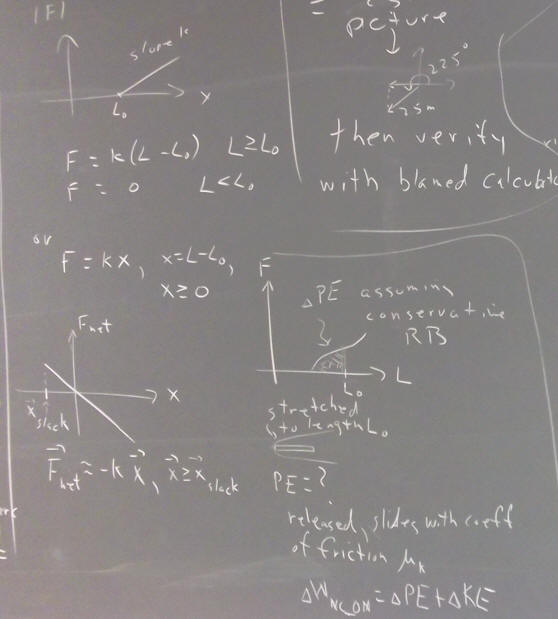 |F|
slope k
L₀
x
F = k(L - L₀) L ≥ L₀
F = 0 L < L₀
or
F = kx, x = L - L₀,
x ≥ 0
Fnet
x
x⃗slack
F⃗net = -k x⃗, x⃗ ≥ x⃗slack
=
picture
225°
25m
then verify
with
F
ΔPE assuming
conservative
RB
L
L₀
stretched
to length L₀
PE = ?
released, slides with coeff
of friction μk
ΔW = ΔPE + ΔKE